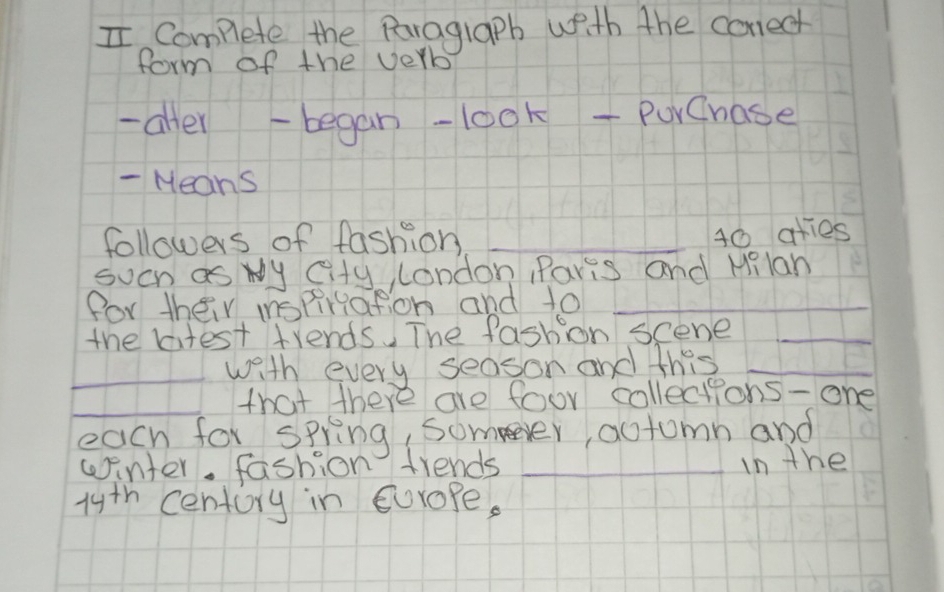 II Complete the Paragraph with the correct
form of the verb
- alter - began - look - Purchase
- Means
followers of fashion, ________ to cities
such as NY City, London, Paris and Milan
for their inspiriation and to ________
the latest trends. The fashion scene ____
____ with every season and this ____
____ that there are four collections - one
each for spring, summer, autumn and
winter. fashion trends ________ in the
14th century in Europe.